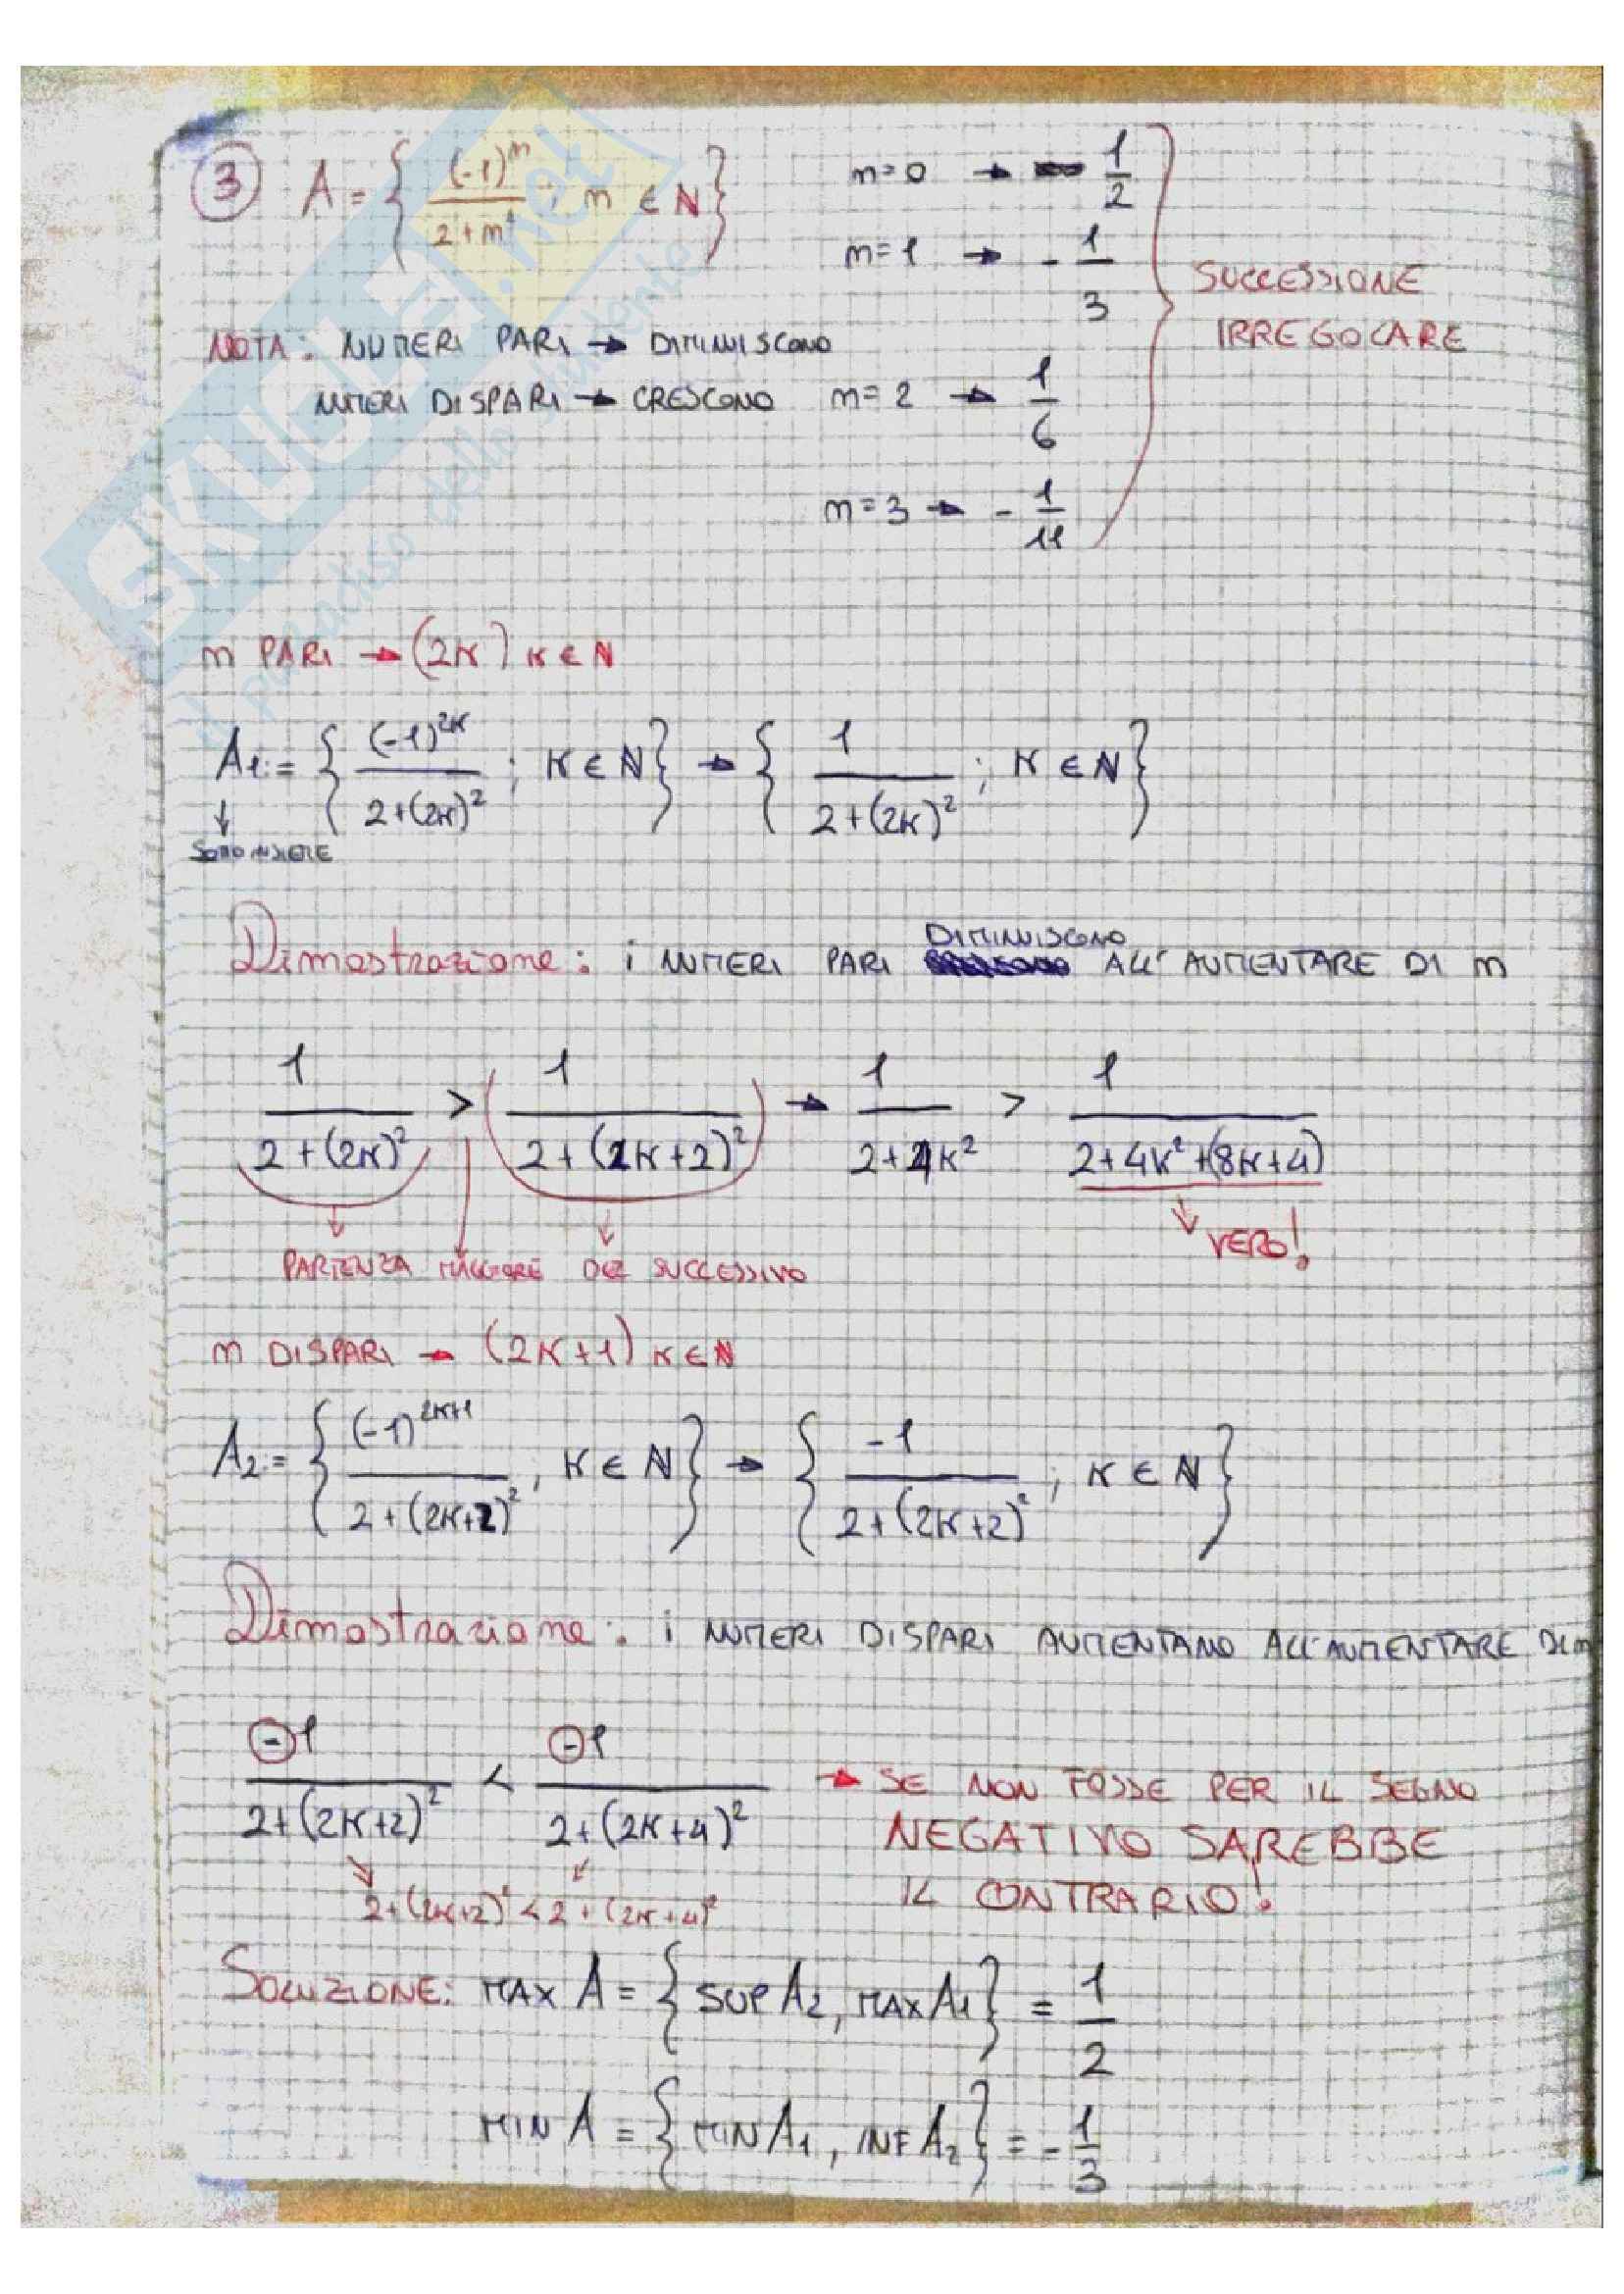 ③ A = { (-1)^m / 2+m² ; m ∈ N }
m=0 → 1/2
m=1 → -1/3
SUCCESSIONE
IRREGOLARE
NOTA: NUMERI PARI → DIMINUISCONO
NUMERI DISPARI → CRESCONO
m=2 → 1/6
m=3 → -1/11
m PARI → (2K) K ∈ N
A1:= { (-1)^2K / 2+(2K)² ; K ∈ N } → { 1 / 2+(2K)² ; K ∈ N }
↓
SOTTOINSIEME
Dimostrazione: i NUMERI PARI DIMINUISCONO ALL'AUMENTARE DI m
1 / 2+(2K)² > ( 1 / 2+(2K+2)² ) → 1 / 2+4K² > 1 / 2+4K²+(8K+4)
VERO!
PARTENZA MAGGIORE DEL SUCCESSIVO
m DISPARI → (2K+1) K ∈ N
A2:= { (-1)^2K+1 / 2+(2K+2)² ; K ∈ N } → { -1 / 2+(2K+2)² ; K ∈ N }
Dimostrazione: i NUMERI DISPARI AUMENTANO ALL'AUMENTARE DI m
-1 / 2+(2K+2)² < -1 / 2+(2K+4)² → SE NON FOSSE PER IL SEGNO
NEGATIVO SAREBBE
IL CONTRARIO!
2+(2K+2)² < 2+(2K+4)²
SOLUZIONE: MAX A = { SUP A2, MAX A1 } = 1/2
MIN A = { MIN A1, INF A2 } = -1/3
SKUOLA.net
il paradiso dello studente